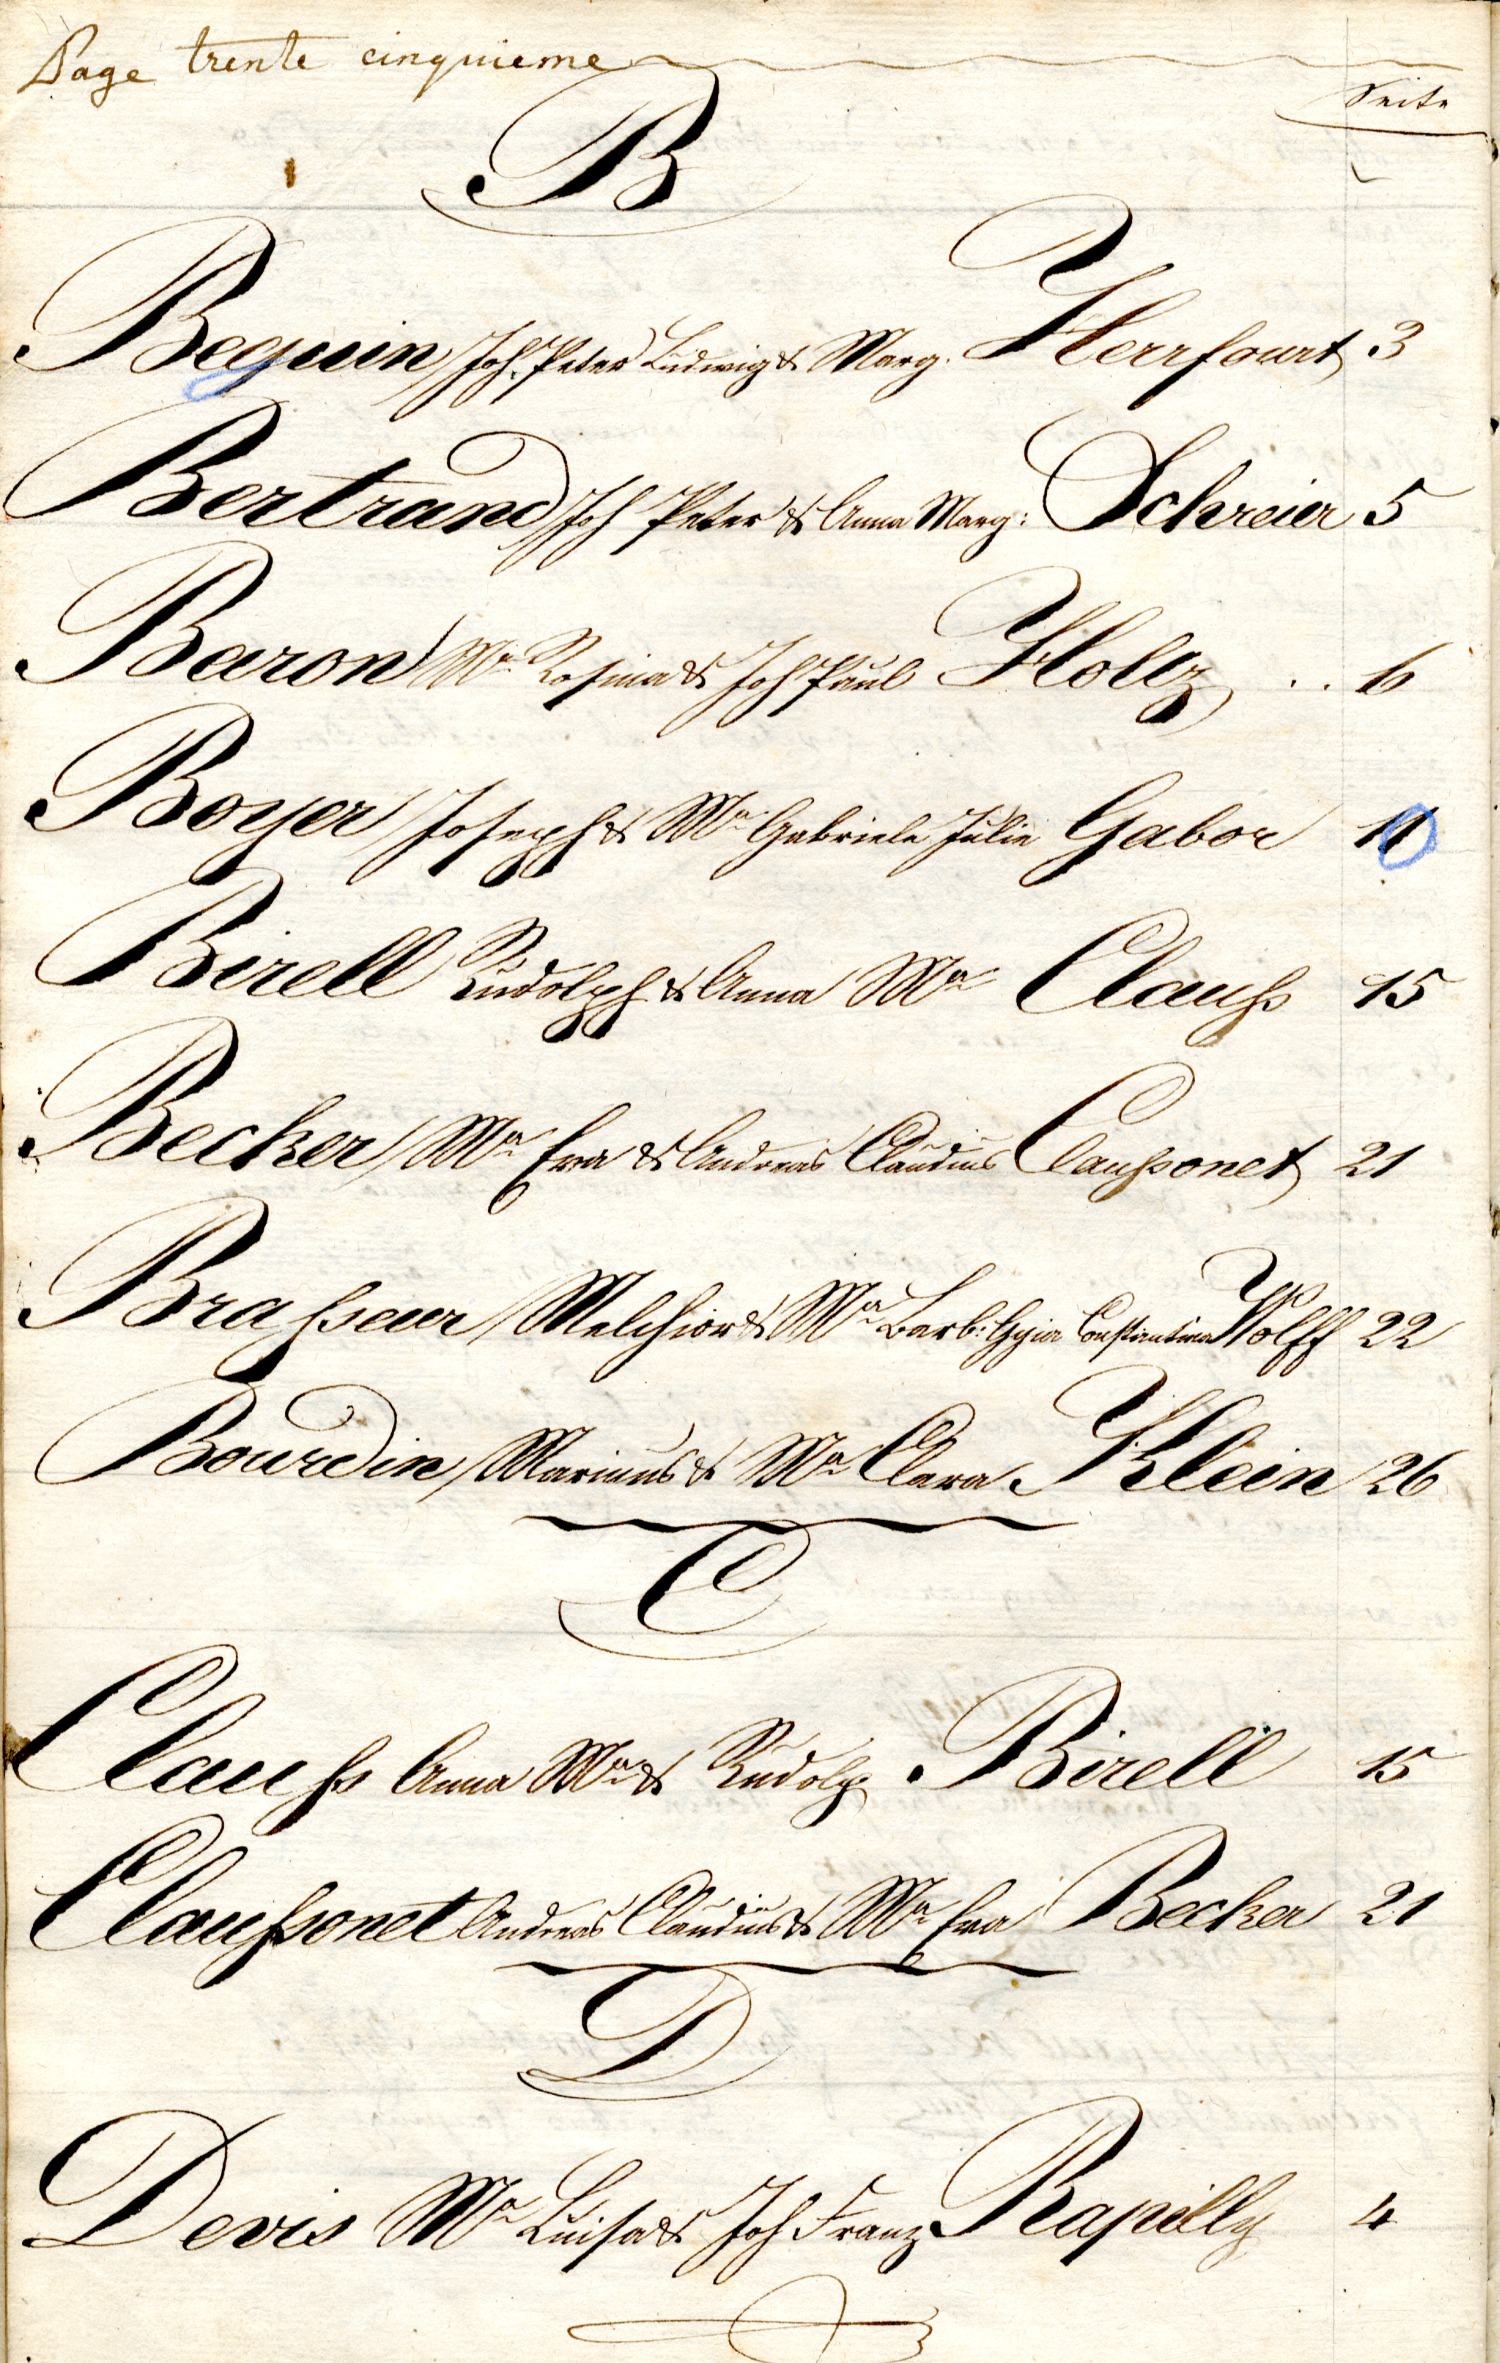 Page trente cinquieme
Seite
B
Beguin Joh. Peter Ludwig & Marg. Herrfourt 3
Bertrand Joh Peter & Anna Marg: Schreier 5
Baron Mª Rosina & Joh Paul Holtz .. 6
Boyer Joseph & Mª Gabriele Julie Gabor 11
Birell Rudolph & Anna Mª Clauß 15
Becker Mª Eva & Andreas Claudius Claußonet 21
Braßeur Melchior & Mª Barb: Constantina Wolff 22
Bourdin Marinus & Mª Clara Klein 26
C
Clauß Anna Mª & Rudolp Birell 15
Claußonet Andreas Claudius & Mª Eva Becker 21
D
Devis Mª Luisa & Joh Franz Rapilly 4